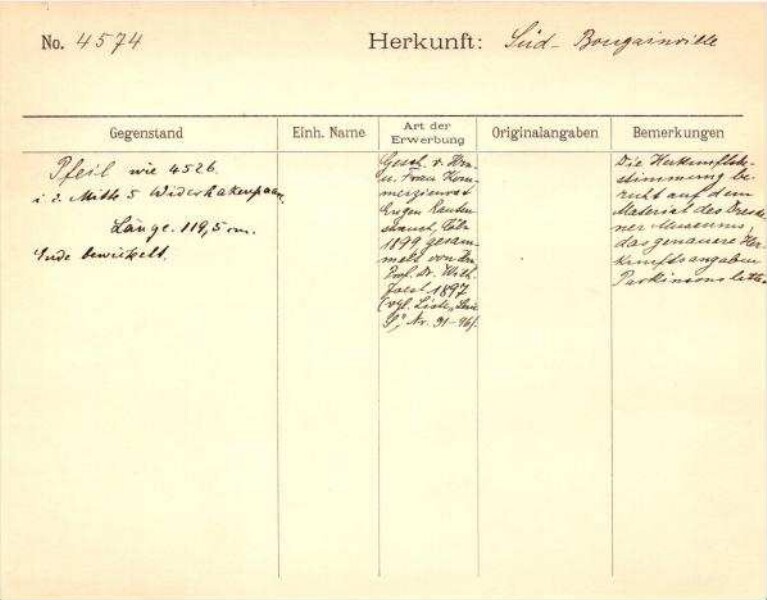 No. 4574 Herkunft: Süd-Bougainville
Gegenstand Einh. Name Art der Erwerbung Originalangaben Bemerkungen
Pfeil wie 4526.
i. d. Mitte 5 Widerhakenpaare,
Länge. 119,5 cm.
Ende bewickelt.
Gesch. v. Hrn
u. Frau Kom-
merzienrat
Eugen Rauten-
strauch, Cöln
1899, gesam-
melt von dem
Prof. Dr. Wilh.
Joest 1897
(vgl. Liste,
S", Nr. 31-96).
Die Herkunftsbe-
stimmung be-
ruht auf dem
Material des Dresde-
ner Museums,
das genauere Her-
kunftsangaben
Parkinsons